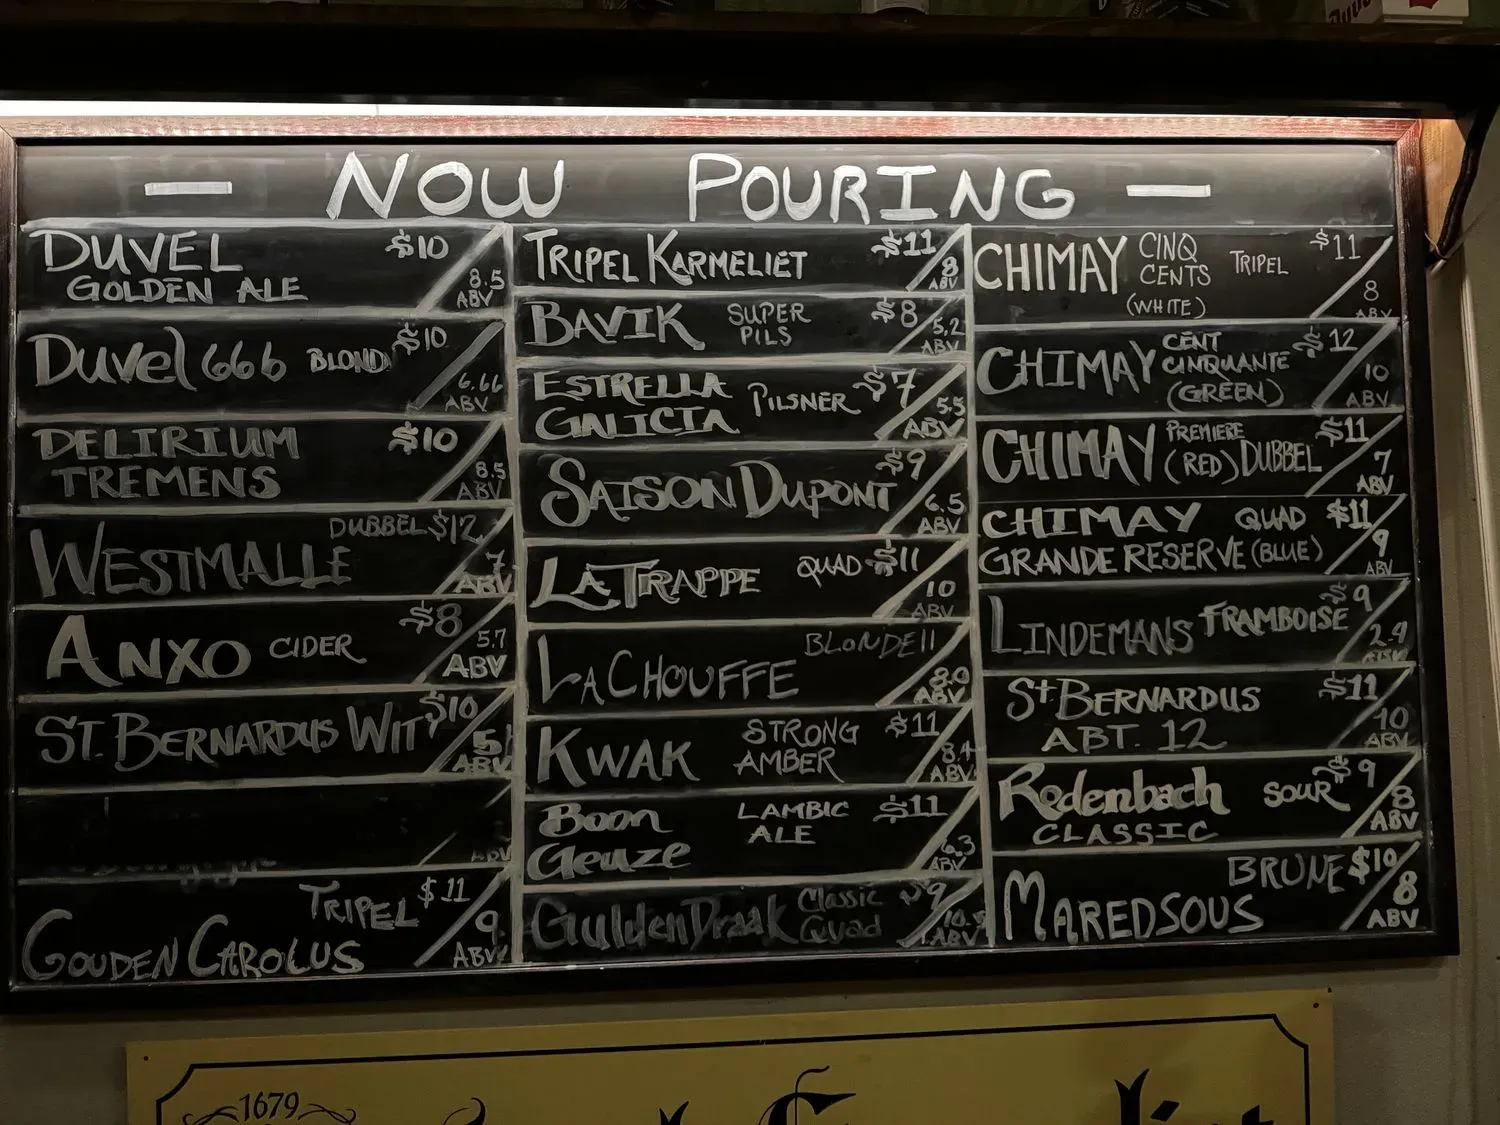 — NOW POURING —
DUVEL $10
GOLDEN ALE 8.5
ABV
Duvel 666 BLOND $10
6.66
ABV
DELIRIUM $10
TREMENS 8.5
ABV
DUBBEL $12
WESTMALLE 7
ABV
ANXO CIDER $8
5.7
ABV
ST. BERNARDUS WIT $10
5
ABV
ABV
TRIPEL $11
GOUDEN CAROLUS 9
ABV
TRIPEL KARMELIET $11
8
ABV
BAVIK SUPER PILS $8
5.2
ABV
ESTRELLA GALICIA PILSNER $7
5.5
ABV
SAISON DUPONT $9
6.5
ABV
LA TRAPPE QUAD $11
10
ABV
BLONDE 11
LA CHOUFFE 8.0
ABV
KWAK STRONG AMBER $11
8.4
ABV
Boon Geuze LAMBIC ALE $11
6.3
ABV
Gulden Draak Classic Quad $9
10.5
ABV
CHIMAY CINQ CENTS (WHITE) TRIPEL $11
8
ABV
CHIMAY CENT CINQUANTE (GREEN) $12
10
ABV
CHIMAY PREMIERE (RED) DUBBEL $11
7
ABV
CHIMAY QUAD $11
GRANDE RESERVE (BLUE) 9
ABV
LINDEMANS FRAMBOISE $9
2.9
ABV
St. BERNARDUS $11
ABT. 12 10
ABV
Rodenbach SOUR $9
CLASSIC 8
ABV
BRUNE $10
MAREDSOUS 8
ABV
1679